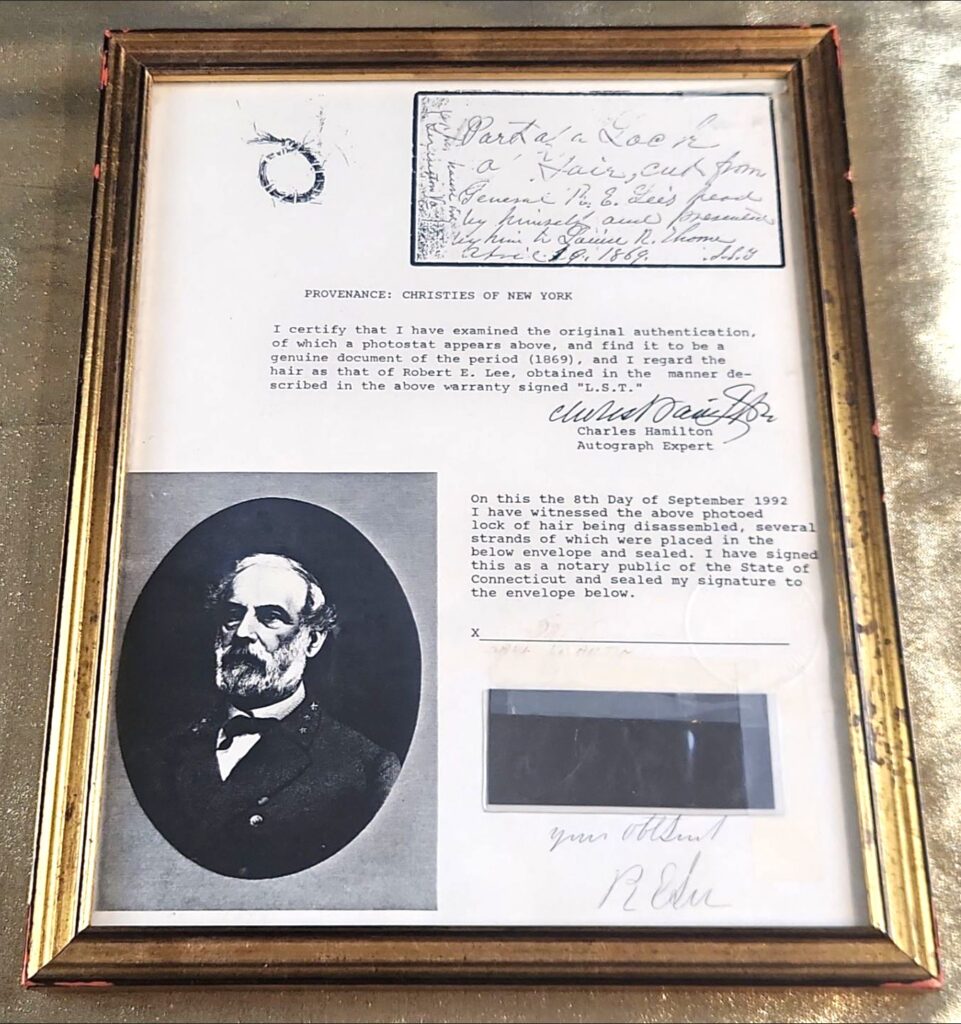 Part of a Lock
of Hair, cut from
General R. E. Lee's head
by himself and presented
by him to R. Thome
April 19. 1869. L.S.T.
PROVENANCE: CHRISTIES OF NEW YORK
I certify that I have examined the original authentication,
of which a photostat appears above, and find it to be a
genuine document of the period (1869), and I regard the
hair as that of Robert E. Lee, obtained in the manner de-
scribed in the above warranty signed "L.S.T."
Charles Hamilton
Charles Hamilton
Autograph Expert
On this the 8th Day of September 1992
I have witnessed the above photoed
lock of hair being disassembled, several
strands of which were placed in the
below envelope and sealed. I have signed
this as a notary public of the State of
Connecticut and sealed my signature to
the envelope below.
X
your obt Servt
R E Lee